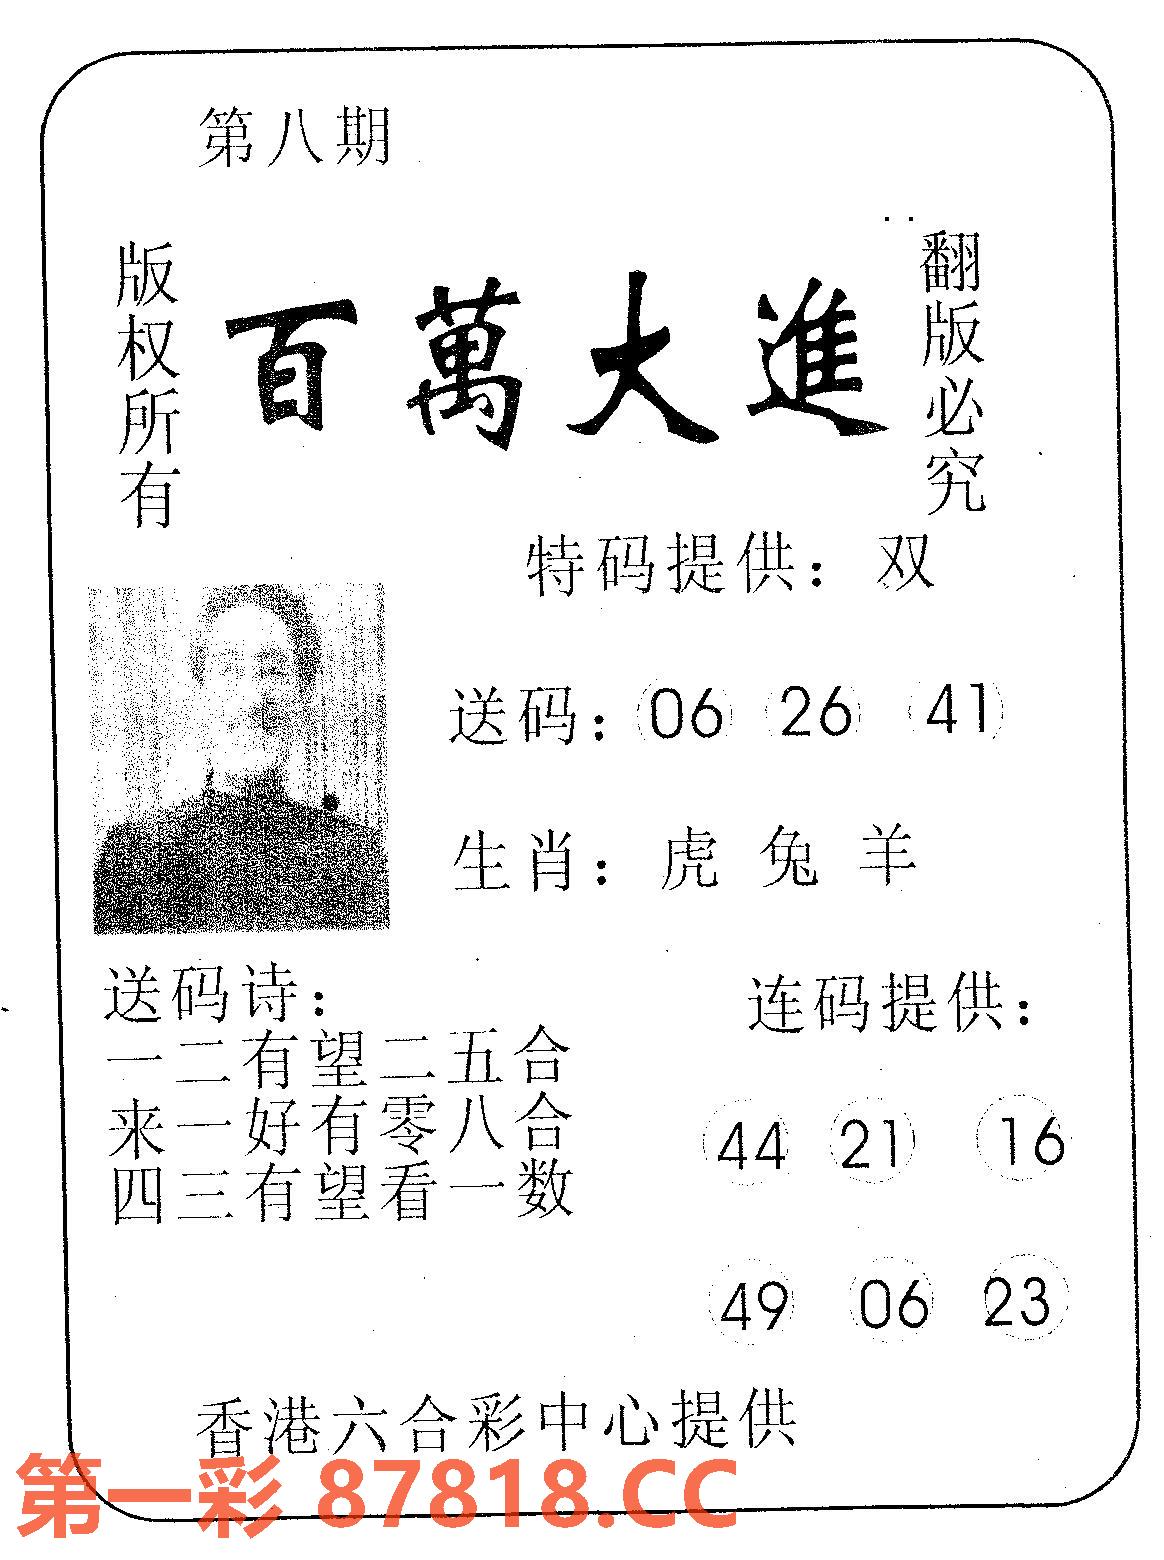 第八期
版权所有
百萬大進
翻版必究
特码提供：双
送码：06 26 41
生肖：虎 兔 羊
送码诗：
一二有望二五合
来一好有零八合
四三有望看一数
连码提供：
44 21 16
49 06 23
香港六合彩中心提供
第一彩 87818.CC